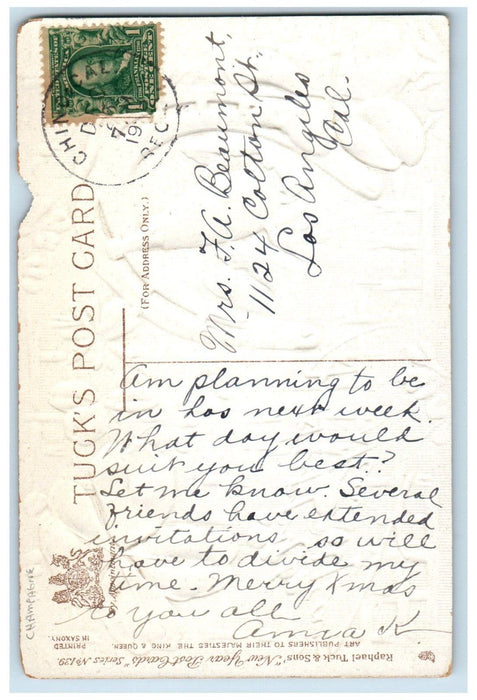 CHINO
CAL
DEC
REC'D
19
TUCK'S POST CARD
(FOR ADDRESS ONLY.)
Mrs. F. A. Beaumont,
1124 Colton St.,
Los Angiles
Cal.
Am planning to be
in Los next week.
What day would
suit you best?
Let me know. Several
friends have extended
invitations so will
have to divide my
time. Merry Xmas
to you all
Anna K.
CHAMPAGNE
Raphael Tuck & Sons' "New Year Post Cards" Series No. 129.
ART PUBLISHERS TO THEIR MAJESTIES THE KING & QUEEN.
PRINTED
IN SAXONY.